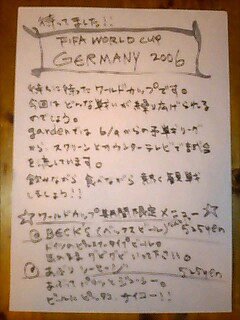 待ってました!!
FIFA WORLD CUP
GERMANY 2006
待ちに待ったワールドカップです。
今回はどんな戦いが繰り広げられる
のでしょう。
gardenでは 6/9からの予選リーグ
から スクリーンとカウンターテレビで試合
を流しています。
飲みながら 食べながら 熱く観戦
しましょう!!
☆ワールドカップ期間限定メニュー☆
BECK'S (ベックスビール) 525yen
ドイツのピルスナータイプビール。
そのままグビグビいって下さい。
あらびきソーセージ 525yen
ビールにピッタリ サイコー!!